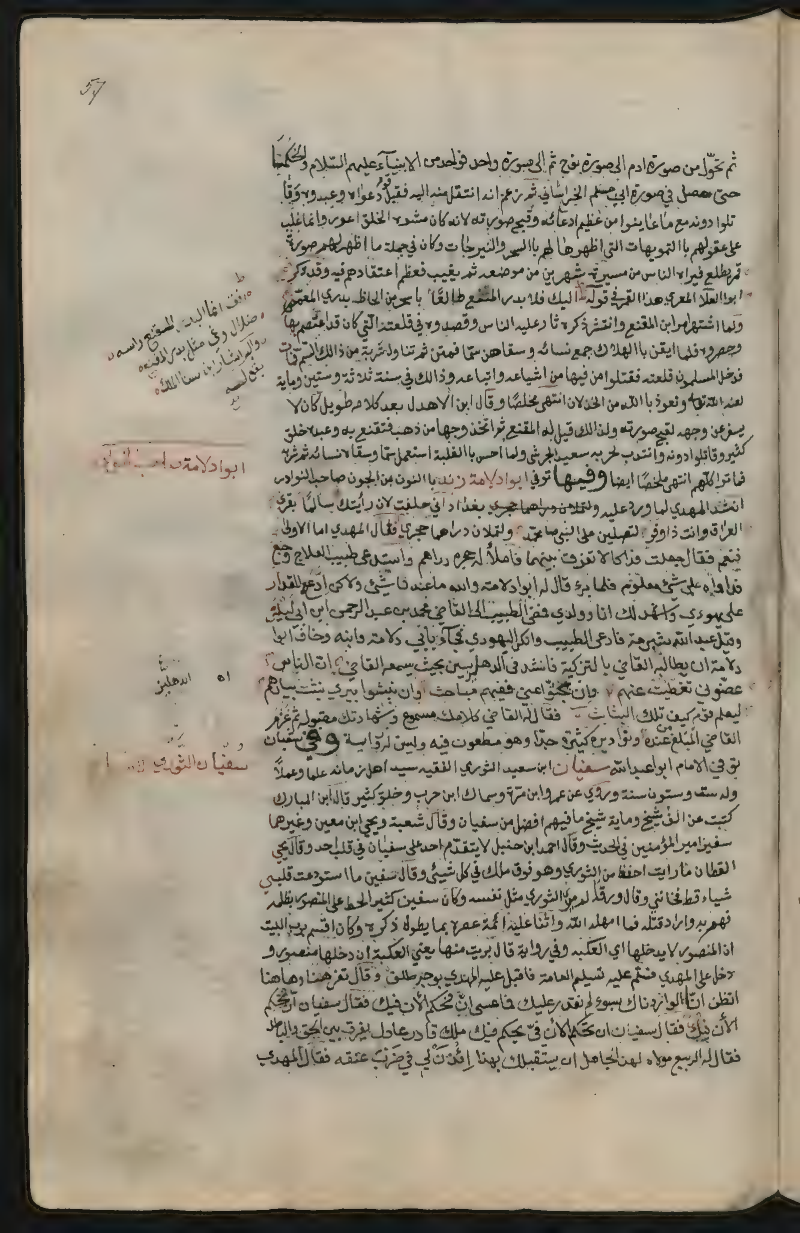 ثم تحول من صورة ادم الى صورة نوح ثم الى صورة واحد فواحد من الانبيآء عليهم السّلام والحكمآ
حتى حصل في صورة ابي مسلم الخراساني ثم زعم انه انتقل منه اليه فقبل قوم دعواه وعبدوه وقا
تلوا دونه مع ما عاينوا من عظيم ادعائه وقبح صورته لانه كان مشوه الخلق اعور وانما غلب
على عقولهم باالتمويهات التي اظهرها لهم باالسحر والنيرنجات وكان في جملة ما اظهر لهم صورة
قمر يطلع فيراه الناس من مسيرة شهرين من موضعه ثم يغيب فعظم اعتقادهم فيه وقد ذكر
ابو العلا المعري هذا القمر في قوله اليك فلا بدر المقنع طالعًا باسحر من الحاظ بدري المعمم
ولما اشتهر امر ابن المقنع وانتشر ذكره ثار عليه الناس وقصدوه في قلعته التي كان قد اعتصم بها
وحصروه فلما ايقن باالهلاك جمع نسائه وسقاهن سمّا فمتن ثم تناول شربة من ذالك السم فمات
فدخل المسلمون قلعته فقتلوا من فيها من اشياعه واتباعه وذالك في سنة ثلاثة وستين ومأية
لعنه الله تعالى ونعوذ باالله من الخذلان انتهى مخلصًا وقال ابن الاهدل بعد كلام طويل كان لا
يسفر عن وجهه لقبح صورته ولذالك قيل له المقنع ثم اتخذ وجها من ذهب فتقنع به وعبده خلق
كثير وقاتلوا دونه وانتدب لحربه سعيد الجرشي ولما احس باالغلبة استعمل سمّا وسقا لانسائه ثم شربه
فماتوا كلهم انتهى ملخصًا ايضا وفيها توفي ابوا دلامة زند باالنون من الجون صاحب النوادر
انشد المهدي لما ورد عليه بغداد اني حلفت لان رأيتك سالمًا بقرى
العراق وانت ذا وفر لتصلين على النبي محمد ولتملان دراهما حجري فقال المهدي اما الاولى
فنعم فقال جعلت فداك لا تفرق بينهما فاملأ له حجره دراهم واستدعى طبيب لعلاج وجع
فداواه على شئ معلوم فلما برء قال له ابوا دلامة والله ما عندنا شئ ولاكن ادع المقدار
على يهودي واشهد لك انا وولدي فمضى الطبيب الى القاضي محمد بن عبد الرحمن ابن ابي ليلى
وقيل عبد الله بن شبرمة فادعى الطبيب وانكر اليهودي فجآء بأبي دلامة وابنه وخاف ابوا
دلامة ان يطالبه القاضي باالتزكية فانشد في الدهليز بحيث يسمعه القاضي ان الناس
غطوني تغطيت عنهم وان بحثوا عني ففيهم مباحث وان نبشوا بيري نبشت بيارهم
ليعلم قوم كيف تلك النبائث فقال له القاضي كلامك مسموع وشهادتك مقبولة ثم غرم
القاضي المبلغ عنده ونوادره كثيرة جدا وهو مطعون فيه وليس له رواية وفي شعبان
توفي الامام ابو عبد الله سفيان ابن سعيد الثوري الفقيه سيد اهل زمانه علما وعملاً
وله ست وستون سنة وروي عن عمرو ابن مرة وسماك ابن حرب وخلق كثير قال ابن المبارك
كتبت عن الف شيخ وماية شيخ ما فيهم افضل من سفيان وقال شعبة ويحيى ابن معين وغيرهما
سفين امير المؤمنين في الحديث وقال احمد ابن حنبل لا يتقدم احد على سفيان في قلب احد وقال يحيى
القطان ما رايت احفظ من الثوري وهو فوق مالك في كل شيئ وقال سفين ما استودعت قلبي
شياء قط فخانني وقال ورقا لم ير الثوري مثل نفسه وكان سفين كثير الحط على المنصور بظلمه
فهم به واراد قتله فما امهله الله واثنا عليه ائمة عصره بما يطول ذكره وكان اقسم برب البيت
ان المنصور لا يدخلها اي الكعبه وفي رواية قال بريت منها يعني الكعبة ان دخلها منصور و
دخل على المهدي فسلم عليه تسليم العامة فاقبل عليه المهدي بوجه طلق وقال تفر هنا وهاهنا
اتظن انا لو اردناك بسوء لم نقدر عليك فما عسى ان نحكم الأن فيك فقال سفيان ان تحكم
الأن فيّ يحكم فيك ملك قادر عادل يفرق بين الحق والباطل
فقال له الربيع مولاه لهذا الجاهل ان يستقبلك بهذا إئذن لي في ضرب عنقه فقال المهدي
ابوا دلامة صاحب النوادر
الدهليز
سفيان الثوري